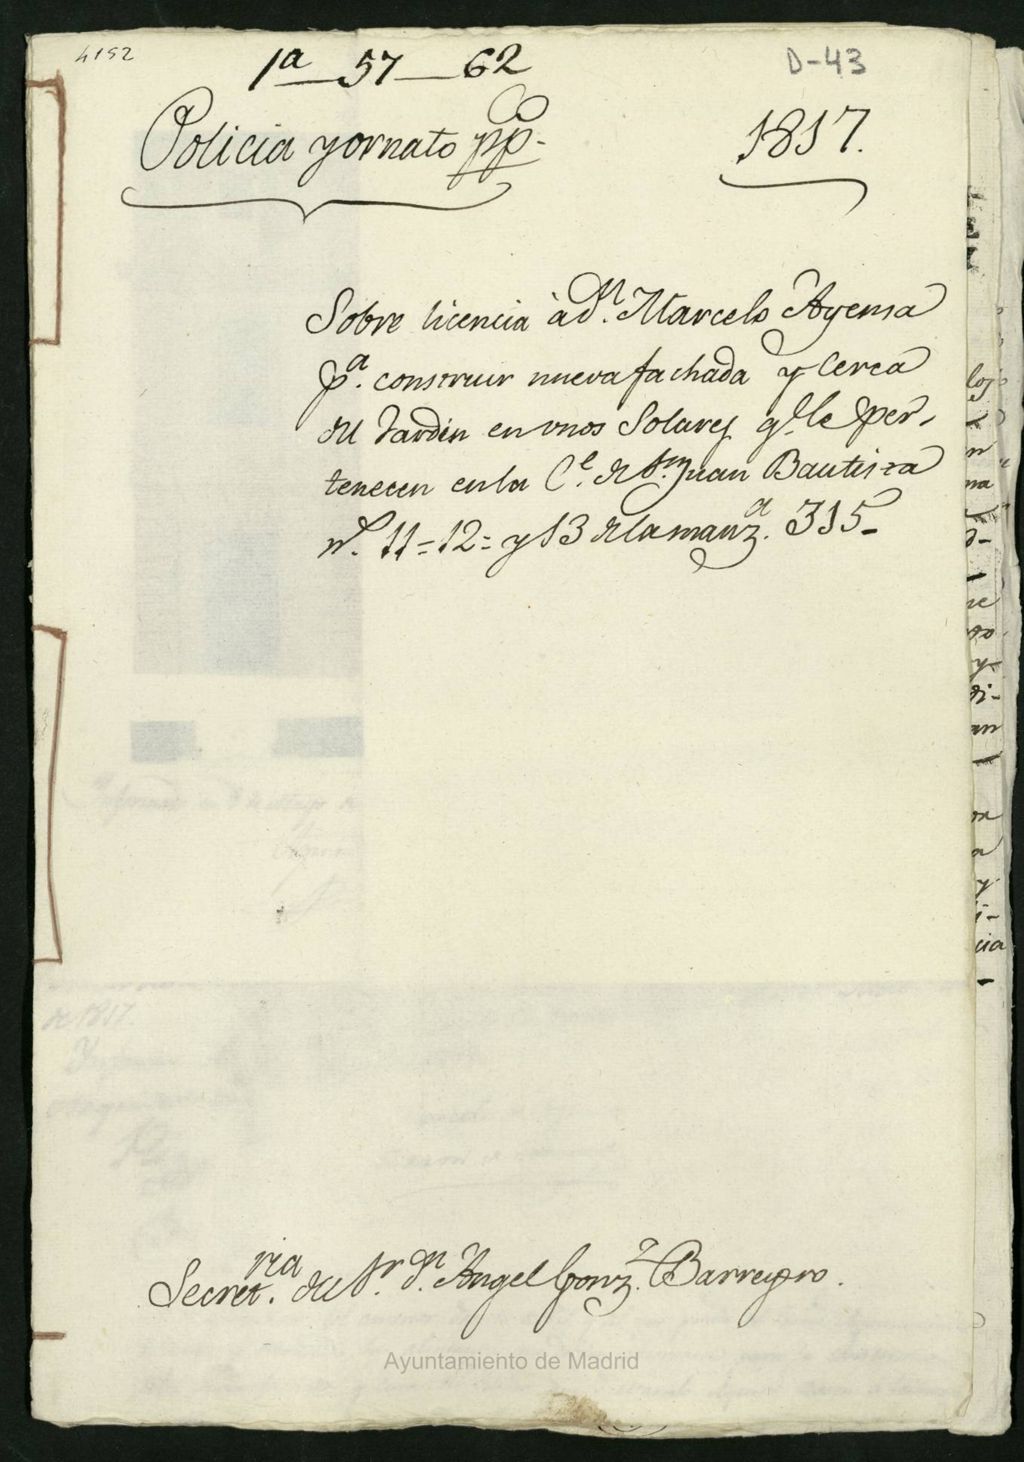 4152
1ª 57 62
D-43
Policia y ornato ppco.
1817.
Sobre licencia à Dn. Marcelo Ayensa
pª. construir nueva fachada y Cerca
del Jardin en unos Solares qe. le per-
tenecen en la Ce. de Sn. Juan Bautista
n.os 11=12= y 13 de la manzª. 315-
Secretria. del Sr. Dn. Angel Gonz. Barreyro.
Ayuntamiento de Madrid
de 1817.